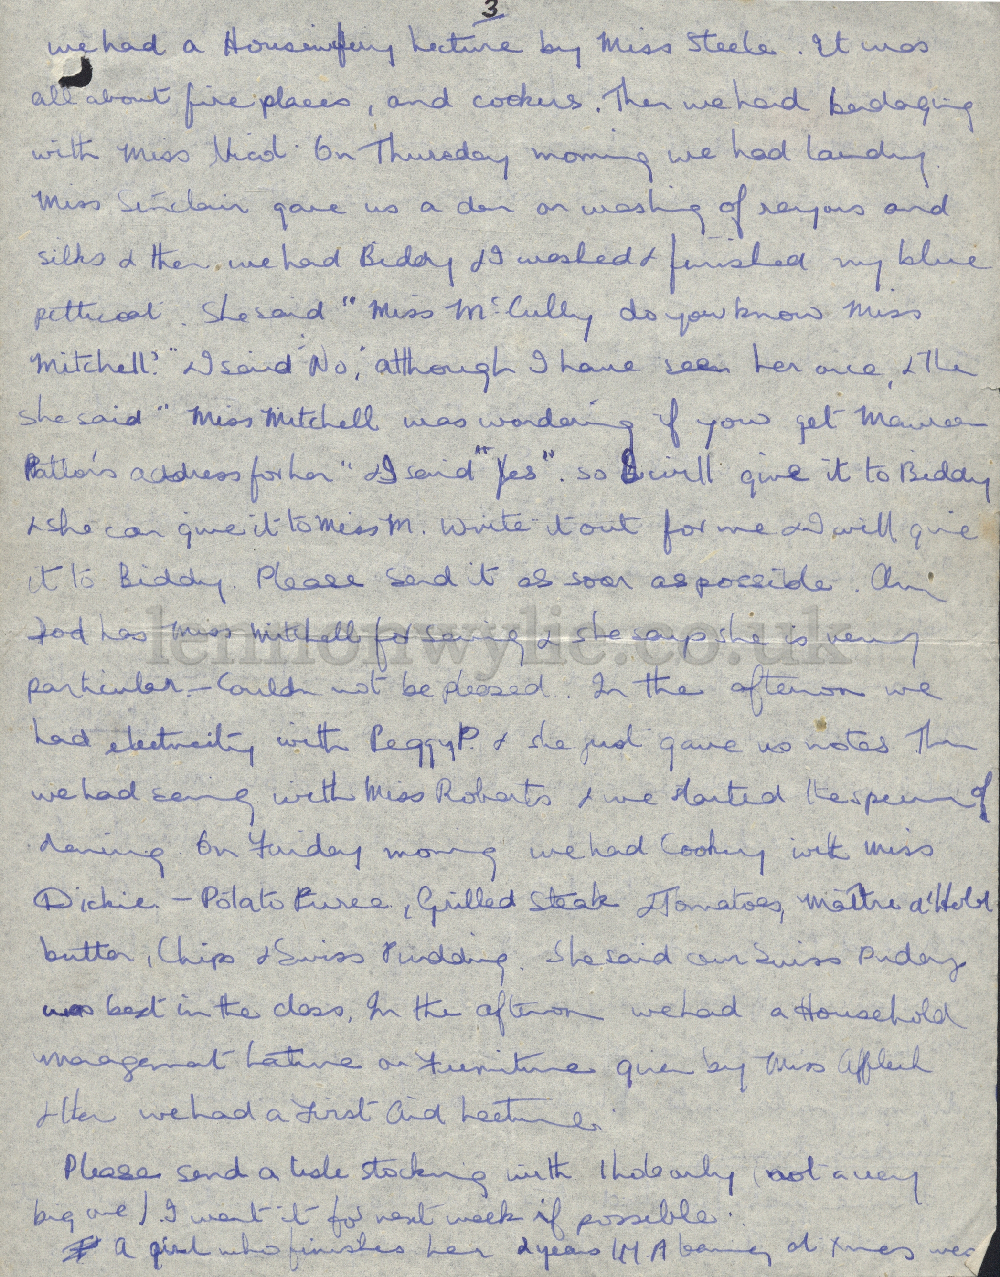 3
we had a Housewifery Lecture by Miss Steele. It was
all about fire places, and cookers. Then we had bandaging
with Miss Nicol. On Thursday morning we had laundry
Miss Sinclair gave us a dem on washing of rayons and
silks & then we had Biddy & I washed & finished my blue
petticoat. She said "Miss McCully do you know Miss
Mitchell?" & I said 'No,' although I have seen her once, & then
she said "Miss Mitchell was wondering if you get Maureen
Patton's address for her" & I said "Yes". So I will give it to Biddy
& she can give it to Miss M. Write it out for me & I will give
it to Biddy. Please send it as soon as possible. Ann
has Miss Mitchell for sewing & she says she is very
particular - Couldn not be pleased. In the afternoon we
had electricity with Peggy P. & she just gave us notes Then
we had sewing with Miss Roberts & we started the specimen of
darning On Friday morning we had Cookery with Miss
Dickie - Potato Puree, Grilled Steak & Tomatoes, Maître d'Hotel
butter, Chips & Swiss Pudding. She said our Swiss Pudding
was best in the class, In the afternoon we had a Household
management Lecture on Furniture given by Miss Affleck
& then we had a First Aid Lecture.
Please send a lisle stocking with 1 hole only (not a very
big one). I want it for next week if possible.
A girl who finishes her 2 years IMA at Xmas was
lennonwylie.co.uk